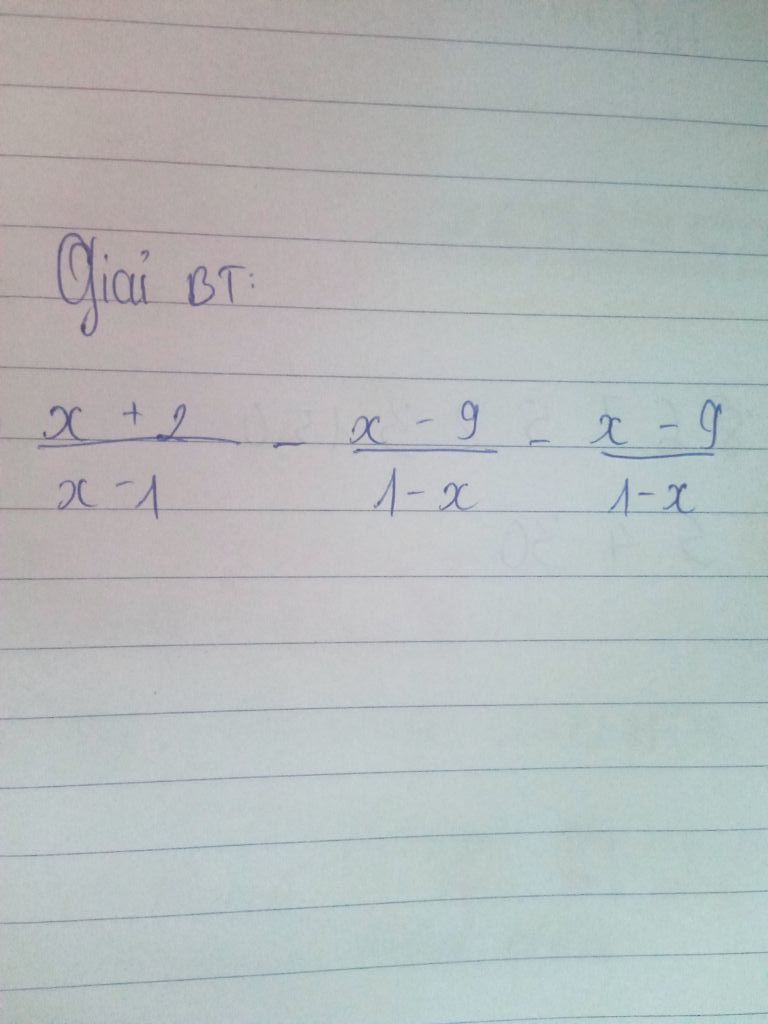 Giải BT:
x + 2 / x - 1 - x - 9 / 1 - x - x - 9 / 1 - x